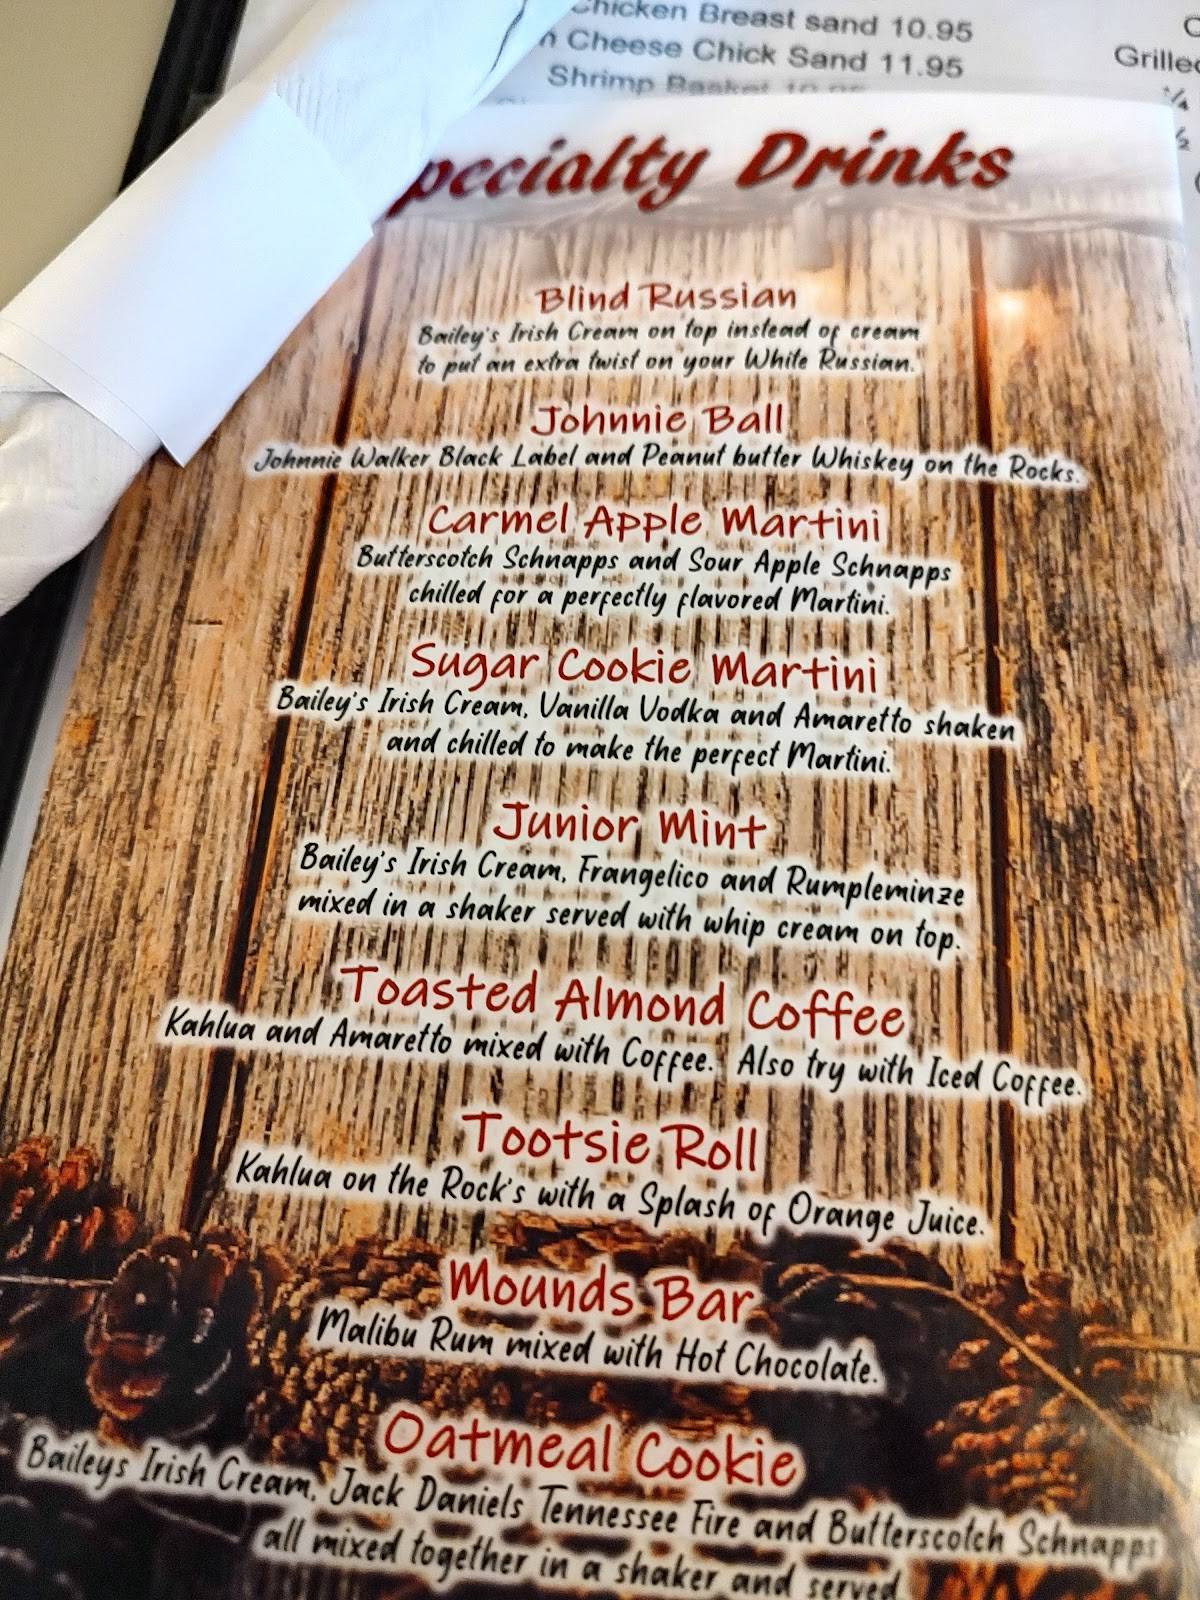 Chicken Breast sand 10.95
Cheese Chick Sand 11.95
Grilled
Shrimp Basket
Specialty Drinks
Blind Russian
Bailey's Irish Cream on top instead of cream
to put an extra twist on your White Russian.
Johnnie Ball
Johnnie Walker Black Label and Peanut butter Whiskey on the Rocks.
Carmel Apple Martini
Butterscotch Schnapps and Sour Apple Schnapps
chilled for a perfectly flavored Martini.
Sugar Cookie Martini
Bailey's Irish Cream, Vanilla Vodka and Amaretto shaken
and chilled to make the perfect Martini.
Junior Mint
Bailey's Irish Cream, Frangelico and Rumpleminze
mixed in a shaker served with whip cream on top.
Toasted Almond Coffee
Kahlua and Amaretto mixed with Coffee. Also try with Iced Coffee.
Tootsie Roll
Kahlua on the Rock's with a Splash of Orange Juice.
Mounds Bar
Malibu Rum mixed with Hot Chocolate.
Oatmeal Cookie
Baileys Irish Cream, Jack Daniels Tennessee Fire and Butterscotch Schnapps
all mixed together in a shaker and served